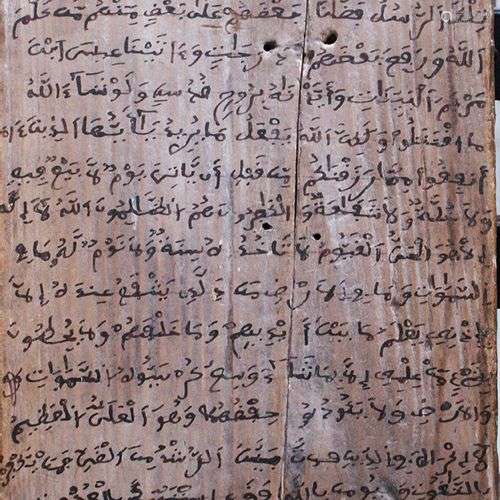 تلك الرسل فضلنا بعضهم على بعض منهم من كلم
الله ورفع بعضهم درجات وءاتينا عيسى ابن
مريم البينات وأيدناه بروح القدس ولو شاء الله
ما اقتتلوا ولكن الله يفعل ما يريد يأيها الذين ءا
أنفقوا مما رزقناكم من قبل أن ياتي يوم لا بيع فيه
ولا خلة ولا شفاعة والكافرون هم الظالمون الله لا إله
إلا هو الحي القيوم لا تاخذه سنة ولا نوم له ما في
السموات وما في الارض من ذا الذي يشفع عنده إلا
بإذنه يعلم ما بين أيديهم وما خلفهم ولا يحيطون
بشيء من علمه إلا بما شاء وسع كرسيه السموات
والارض ولا يئوده حفظهما وهو العلي العظيم
لا إكراه في الدين قد تبين الرشد من الغي فمن يكفر
بالطاغوت ويومن بالله فقد